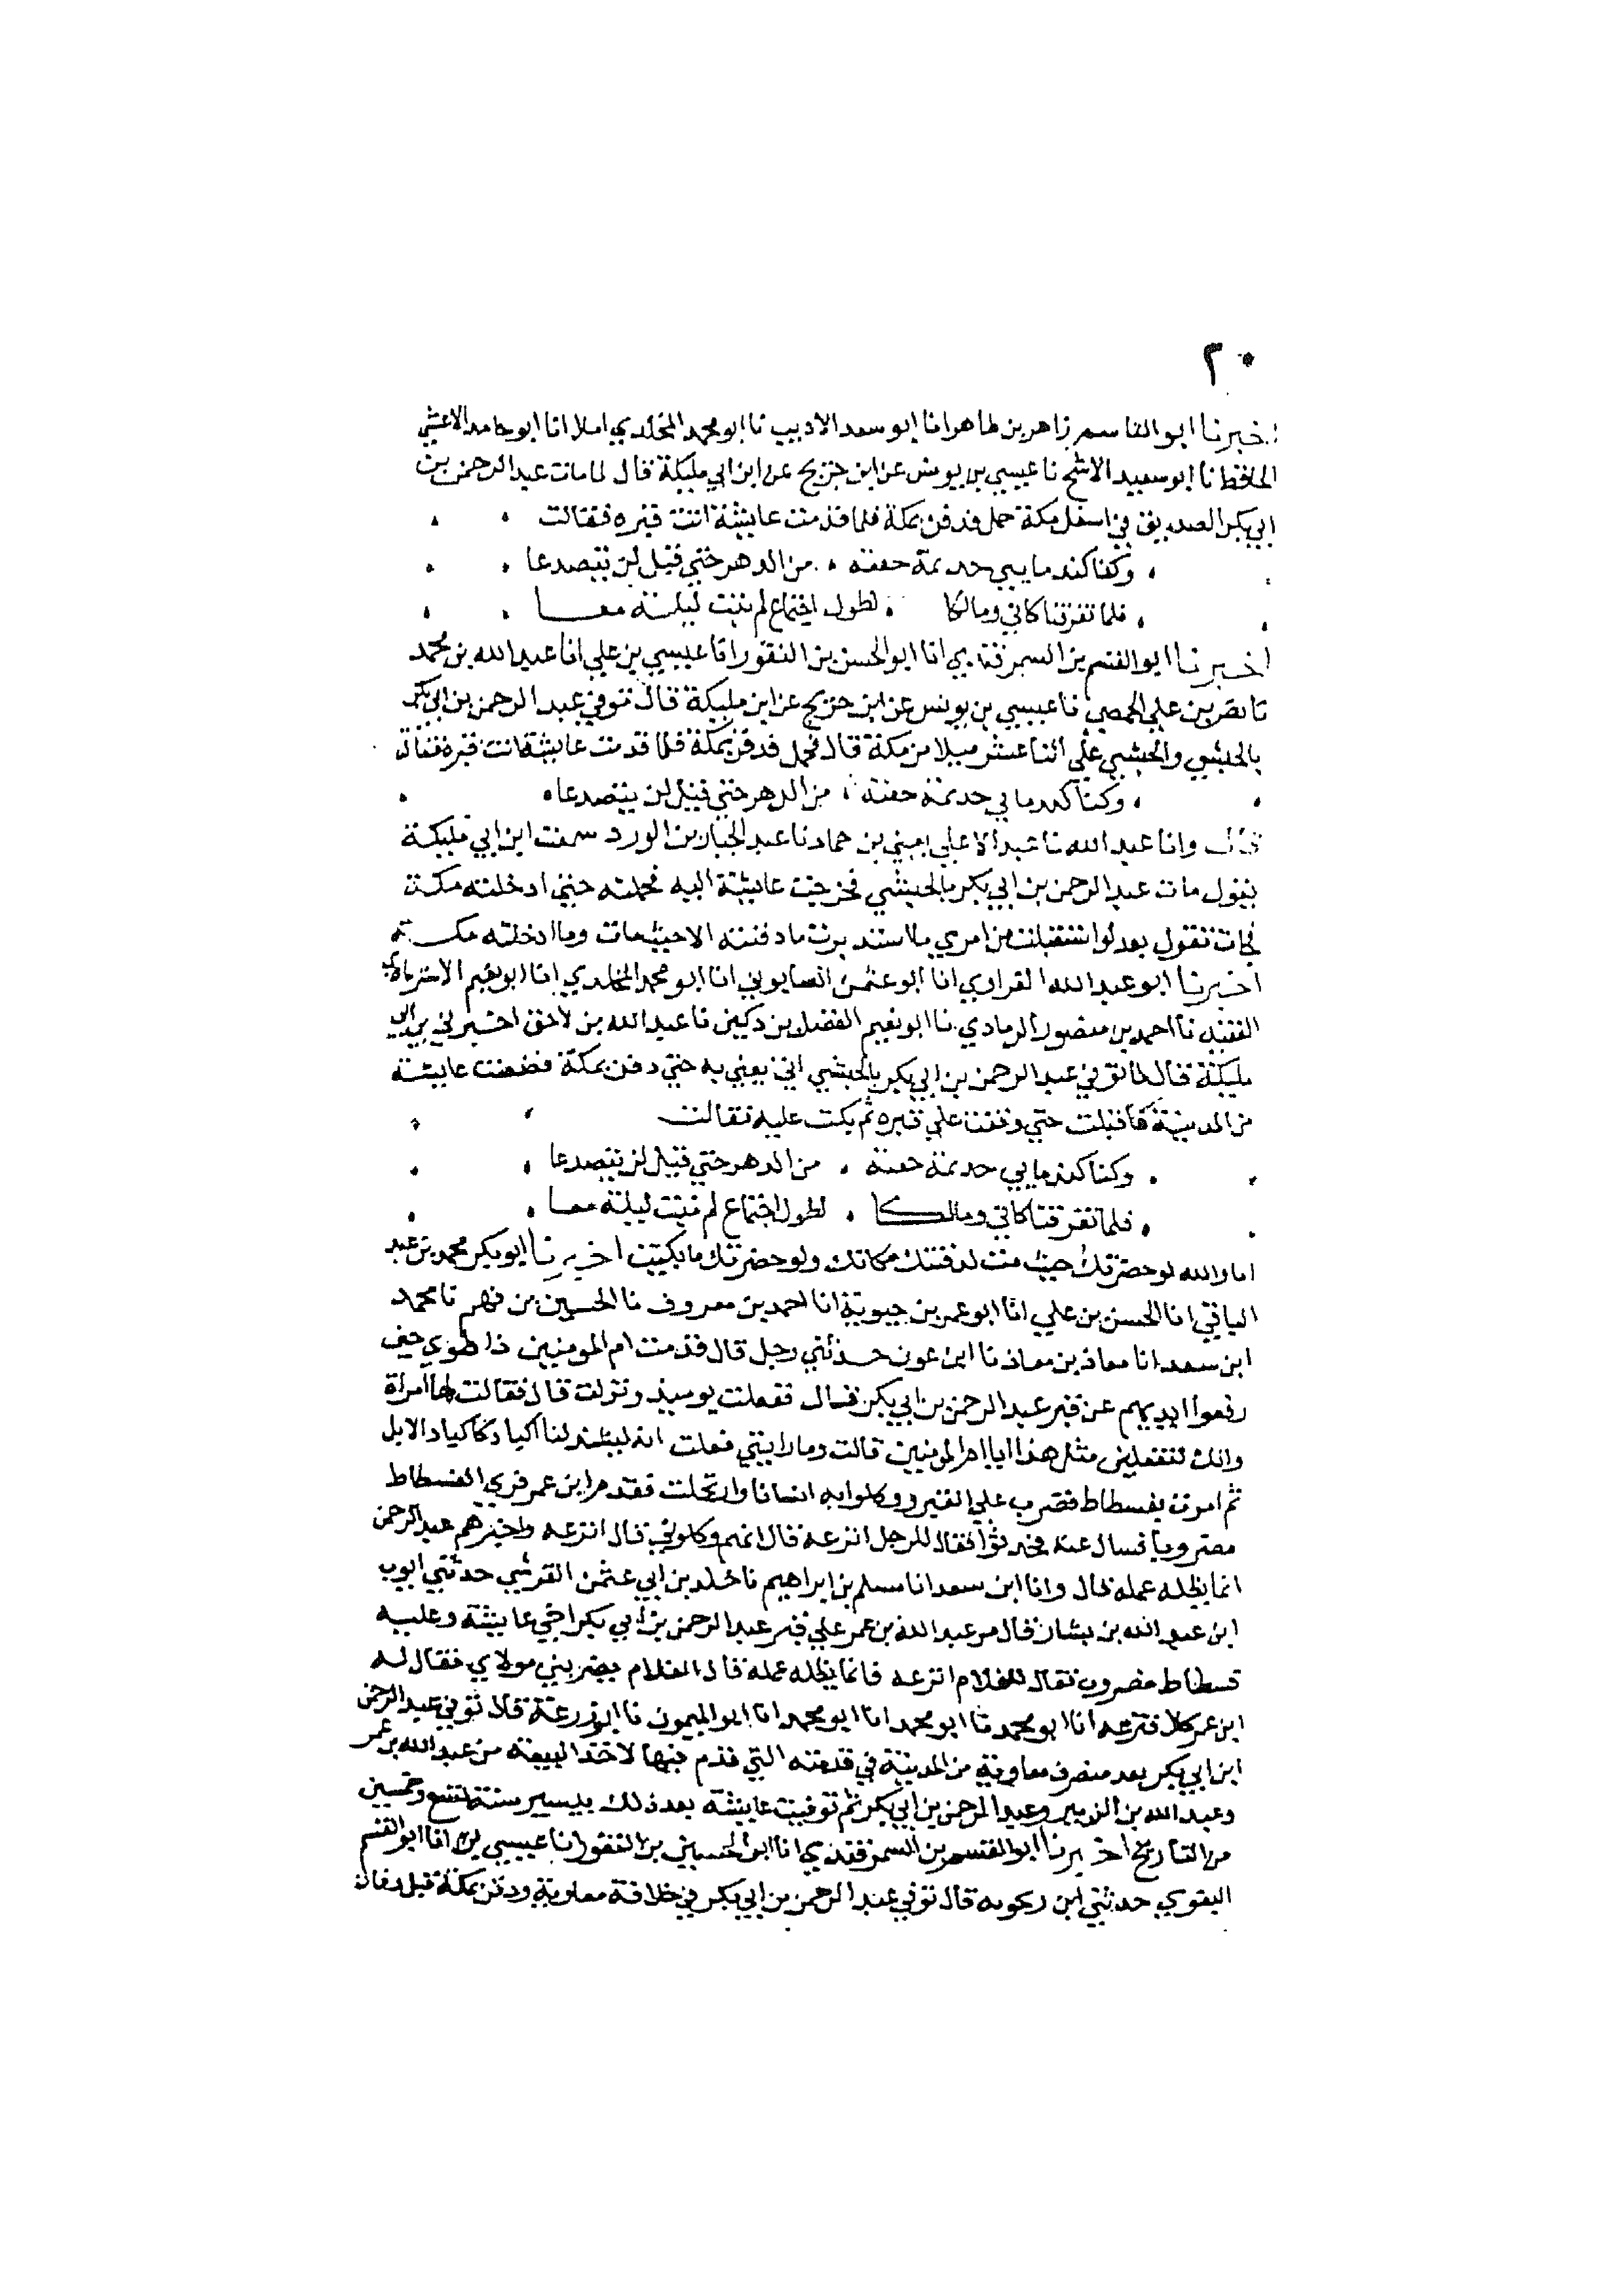 ٢٠
اخبرنا ابو القاسم زاهر بن طاهر انا ابو سعد الاديب نا ابو محمد المخلدي املا انا ابو حامد الاعمشي
الحافظ نا ابو سعيد الاشج نا عيسي بن يونس عن ابن جريج عن ابن ابي مليكة قال لما مات عبد الرحمن بن
ابي بكر الصديق في اسفل مكة حمل فدفن بمكة فلما قدمت عايشة اتت قبره فقالت
وكنا كندمايي جديمة حقبة . من الدهر حتي قيل لن يتصدعا
فلما تفرقنا كاني ومالكا . لطول اجتماع لم نبت ليلة معا
اخبرنا ابو القسم بن السمرقندي انا ابو الحسن بن النقور انا عيسي بن علي انا عبد الله بن محمد
نا نصر بن علي الجهضمي نا عيسي بن يونس عن ابن جريج عن ابن مليكة قال توفي عبد الرحمن بن ابي بكر
بالحبشي والحبشي علي اثنا عشر ميلا من مكة قال فحمل فدفن بمكة فلما قدمت عايشة اتت قبره فقالت
وكنا كندماني جديمة حقبة . من الدهر حتي قيل لن يتصدعا
قال وانا عبد الله نا عبد الاعلي يعني بن حماد نا عبد الجبار بن الورد سمعت ابن ابي مليكة
يقول مات عبد الرحمن بن ابي بكر بالحبشي فخرجت عايشة اليه فحملته حتي ادخلته مكة
فجات تقول بعد لو استقبلت من امري ما استدبرت ما دفنته الا حيث مات وما ادخلته مكة
اخبرنا ابو عبد الله الفراوي انا ابو عثمن الصابوني انا ابو محمد المخلدي انا ابو نعيم الاستراباذي
الفقيه نا احمد بن منصور الرمادي نا ابو نعيم الفضل بن دكين نا عبد الله بن لاحق اخبرني بن ابي
مليكة قال لما توفي عبد الرحمن بن ابي بكر بالحبشي اتي يعني به حتي دفن بمكة فظعنت عايشة
من المدينة فاقبلت حتي وقفت علي قبره ثم بكت عليه فقالت
وكنا كندمايي جديمة حقبة . من الدهر حتي قيل لن يتصدعا
فلما تفرقنا كاني ومالكا . لطول اجتماع لم نبت ليلة معا
اما والله لو حضرتك حيث مت لدفنتك مكانك ولو حضرتك ما بكيت اخبرنا ابو بكر محمد بن عبد
الباقي انا الحسن بن علي انا ابو عمر بن حيوية انا احمد بن معروف نا الحسين بن فهم نا محمد
ابن سعد انا معاذ بن معاذ نا ابن عون حدثني رجل قال قدمت ام المومنين ذا طوي حين
رفعوا ايديهم عن قبر عبد الرحمن بن ابي بكر قال ففعلت يوميذ وتركت قال فقالت لها امراة
وانك لتفعلين مثل هذا يا ام المومنين قالت وما رايتي فعلت انه ليست لنا اكباد كاكباد الابل
ثم امرت بفسطاط فضرب علي القبر ووكلوا به انسانا وارتحلت فقدم ابن عمر فري الفسطاط
مضروبا فسال عنه فحدثوا فقال للرجل انزعه قال انهم وكلوني قال انزعه واخبرهم عبد الرحمن
انما يظله عمله قال وانا ابن سعد انا مسلم بن ابراهيم نا خلد بن ابي عثمن القرشي حدثني ايوب
ابن عبد الله بن يسار قال مر عبد الله بن عمر علي قبر عبد الرحمن بن ابي بكر اخي عايشة وعليه
فسطاط مضروب فقال للغلام انزعه فانما يظله عمله قال الغلام يضربني مولاي فقال له
ابن عمر كلا فنزعه انا ابو محمد نا ابو محمد انا ابو محمد انا ابو الميمون نا ابو زرعة قال توفي عبد الرحمن
ابن ابي بكر بعد منصرف معاوية من المدينة في قدمته التي قدم فيها لاخذ البيعة من عبد الله بن عمر
وعبد الله بن الزبير وعبد الرحمن بن ابي بكر ثم توفيت عايشة بعد ذلك بيسير سنة تسع وخمسين
من التاريخ اخبرنا ابو القسم بن السمرقندي انا ابو الحسين بن النقور انا عيسي بن انا ابو القسم
البغوي حدثني ابن زنجويه قال توفي عبد الرحمن بن ابي بكر في خلافة معاوية ودفن بمكة قبل وفاة